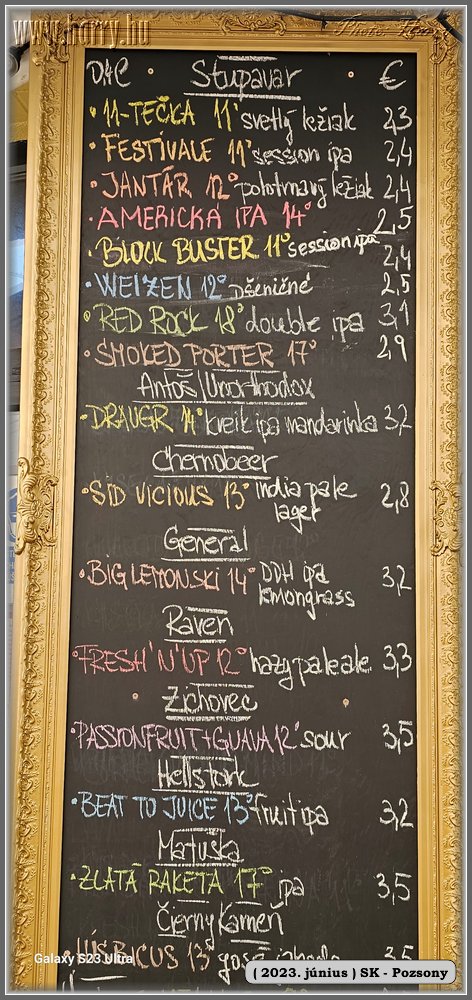 www.harry.hu
0,4€ Stupavar €
• 11-TEČKA 11° svetlý ležiak 2,3
• FESTIVALE 11° session ipa 2,4
• JANTÁR 12° polotmavý ležiak 2,4
• AMERICKÁ IPA 14° 2,5
• BLOCK BUSTER 11° session ipa 2,4
• WEIZEN 12° pšeničné 2,5
• RED ROCK 18° double ipa 3,1
• SMOKED PORTER 17° 2,9
Antoš/Unorthodox
• DRAUGR 14° kveik ipa mandarinka 3,2
Chernobeer
• SID VICIOUS 13° india pale 2,8
lager
General
• BIG LEMONSKI 14° DDH ipa 3,2
lemongrass
Raven
• FRESH'N'UP 12° hazy pale ale 3,3
Zichovec
• PASSIONFRUIT+GUAVA 12° sour 3,5
Hellstork
• BEAT TO JUICE 13° fruit ipa 3,2
Matuška
• ZLATÁ RAKETA 17° ipa 3,5
Čierny Kameň
BICUS 13° gose 3,5
Galaxy S23 Ultra
( 2023. június ) SK - Pozsony